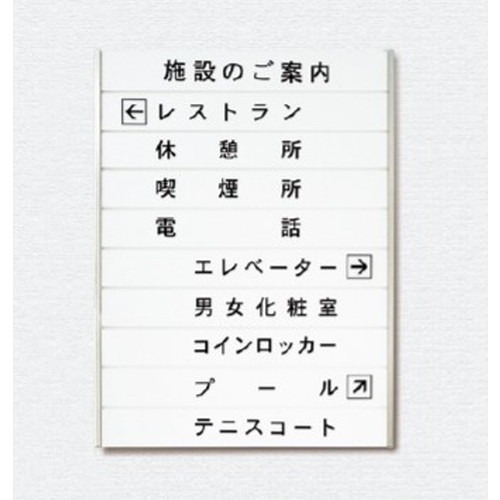 施設のご案内
←レストラン
休憩所
喫煙所
電話
エレベーター→
男女化粧室
コインロッカー
プール↗
テニスコート